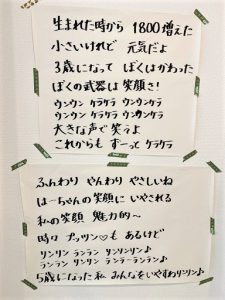 生まれた時から 1800増えた
小さいけれど 元気だよ
3歳になって ぼくはかわった
ぼくの武器は 笑顔さ!
ウンウン ケラケラ ウンウンケラ
ウンウン ケラケラ ウンウンケラ
大きな声で 笑うよ
これからも ずーって ケラケラ
ふんわり やんわり やさしいね
はーちゃんの笑顔に いやされる
私の笑顔 魅力的〜
時々 プッツン♡も あるけど
リンリン ランラン リンリンリン♪
ランラン リンリン ランラーランラン♪
5歳になった私 みんなをいやすわリンリン♪